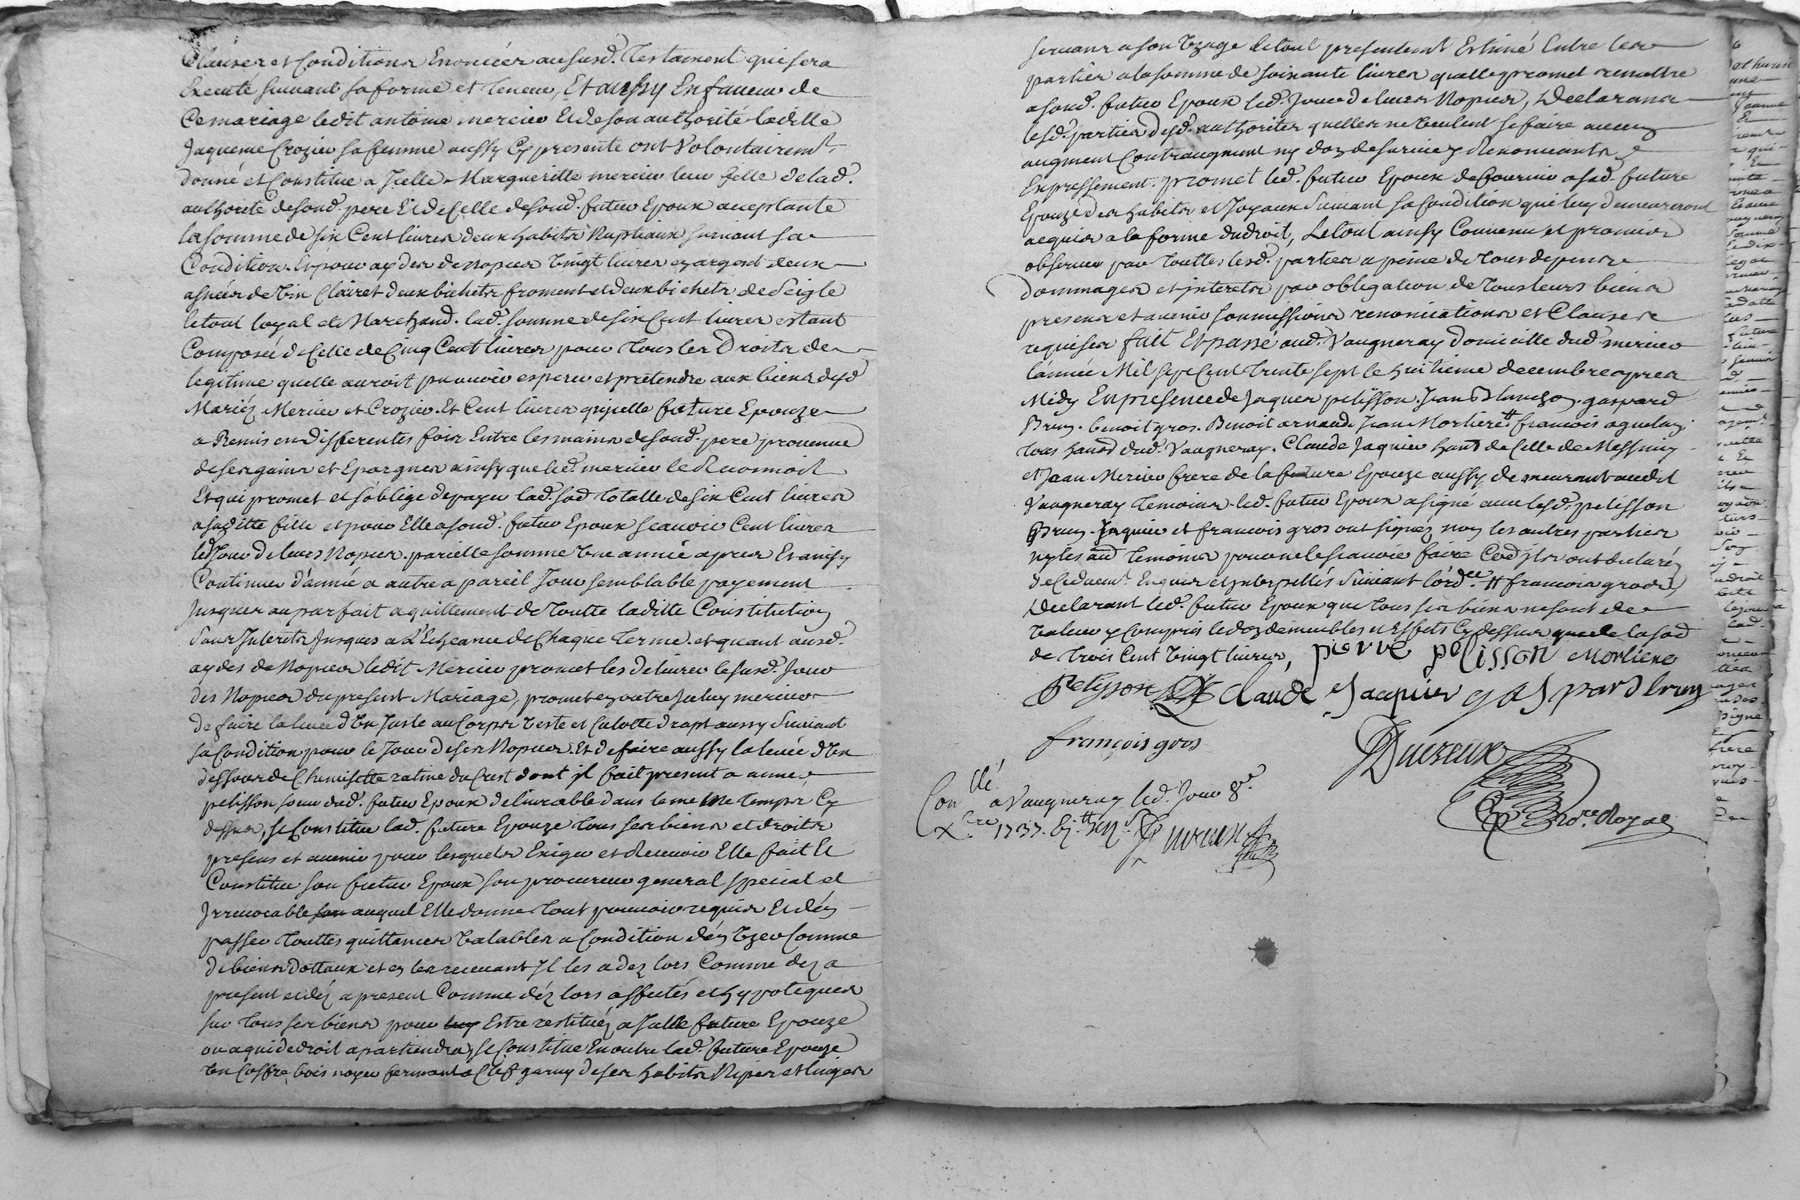 Clauses et Conditions Enoncées au susd. Testament qui sera
Executé suivant sa forme et teneur, Et aussy En faveur de
Ce mariage ledit antoine mercier Et de son authorité ladille
Jaqueme Crozier sa femme aussy Cy presente ont Volontairemt
donné et Constitué a Jcelle Margueritte mercier leur fille de lad.
authorité de sond. pere Et de Celle de sond. futur Epoux acceptante
la somme de six Cent livres deux habits Nuptiaux suivant sa
Condition. Et pour aydes de Nopces Vingt livres en argent deux
asnées de Vin Clairet deux bichets froment et deux bichets de Seigle
le tout loyal et Marchand. lad. somme de six Cent livres estant
Composée de Celle de Cinq Cent livres pour tous les Droits de
legitime quelle auroit pu avoir esperer et pretendre aux biens desd.
Mariez Mercier et Crozier. Et Cent livres quicelle future Epouze
a Remis en differentes fois Entre les mains de sond. pere provenue
de ses gains et Epargnes ainsy que led. mercier le Reconnoit
Et qui promet et soblige de payer lad. somme totalle de six Cent livres
a sadite fille et pour Elle a sond. futur Epoux scavoir Cent livres
led. Jour de leurs Nopces. pareille somme Une année apres Et ainsy
Continuer d'année a autre a pareil Jour semblable payement
Jusques au parfait aquittement de toutte ladille Constitution
sans Interets Jusques a L'Echeance de Chaque terme. et quant ausd.
aydes de Nopces ledit Mercier promet les delivrer le susd. Jour
des Nopces du present Mariage, promet en outre Jceluy mercier
de faire la levée d'Un Juste au Corps Veste et Culotte drapt aussy suivant
sa Condition pour le Jour de ses Nopces. Et de faire aussy la levée d'Un
dessous de Chemisette ratine du Crest dont il fait present a anne
pelisson soeur dud. futur Epoux delivrable dans le meme temps Cy
dessus, se Constitue lad. future Epouze tous ses biens et droits
presens et avenir pour lesquels Exiger et Recevoir Elle fait Et
Constitue son futur Epoux son procureur general special et
Jrrevocable auquel Elle donne tout pouvoir requis Et d'en
passer touttes quittances Valables a Condition d'en Uzer Comme
de biens dottaux et en les recevant Jl les a dez lors Comme dez a
present et dez a present Comme dez lors affectés et hypotequés
sur tous ses biens pour Estre restitués a Jcelle future Epouze
ou a qui de droit apartiendra, se Constitue En outre lad. future Epouze
Un Coffre bois noyer fermant a Clef garny de ses habits Nipes et linges
servant a son Uzage le tout presentement Estimé Entre les
parties a la somme de soixante livres quelle promet remettre
a sond. futur Epoux led. Jour de leurs Nopces, Declarant
lesd. parties desd. authorités quelles ne Veulent se faire aucun
augment Contraugment ny don de survie y Renoncant
Expressement. promet led. futur Epoux de fournir a sad. future
Epouze des habits et Joyaux suivant sa Condition qui luy demeureront
acquis a la forme du droit, Le tout ainsy Convenu et promis
observer par touttes lesd. parties a peine de tous depens
Dommages et interets par obligation de tous leurs biens
presens et avenir soumissions renonciations et Clauses
requises fait Et passé aud. Vaugneray Domicille dud. mercier
l'année Mil sept Cent trente sept le huitieme decembre apres
Midy En presence de Jaques pelisson. Jean Blanchon. gaspard
Brun. benoit gros. Benoit arnaud Jean Morliere # francois aguelon.
tous habts dud. Vaugneray. Claude Jaquier habt de Celle de Messimy
et Jean Mercier frere de la future Epouze aussy demeurant audit
Vaugneray temoins. led. futur Epoux a signé avec lesd. pelisson
Brun. Jaquier et francois gros ont signez non les autres parties
ny les aud. temoins pour ne le scavoir faire Ced. Jls ont declarés
de Ce duement Enquis et Jnterpellés suivant l'ordce # francois gros
Declarant led. futur Epoux que tous ses biens ne sont de
Valeur y Compris le don de meubles et Effets Cy dessus que de la somme
de trois Cent Vingt livres, pierre pelisson Morliere
Pelisson Claude Jacquier gaspard brun
françois gros
Duireux
nore. Royal
Conllé a Vaugneray led. Jour 8e
Xbre 1737.